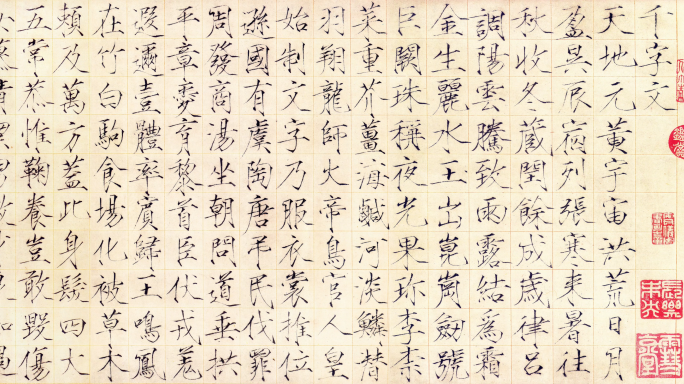 千字文
天地元黃宇宙洪荒日月
盈昃辰宿列張寒来暑往
秋收冬藏閏餘成歲律呂
調陽雲騰致雨露結為霜
金生麗水玉出崑崗劍號
巨闕珠稱夜光果珍李柰
菜重芥薑海鹹河淡鱗潛
羽翔龍師火帝鳥官人皇
始制文字乃服衣裳推位
遜國有虞陶唐弔民伐罪
周發商湯坐朝問道垂拱
平章愛育黎首臣伏戎羌
遐邇壹體率賓歸王鳴鳳
在竹白駒食場化被草木
賴及萬方蓋此身髮四大
五常恭惟鞠養豈敢毀傷